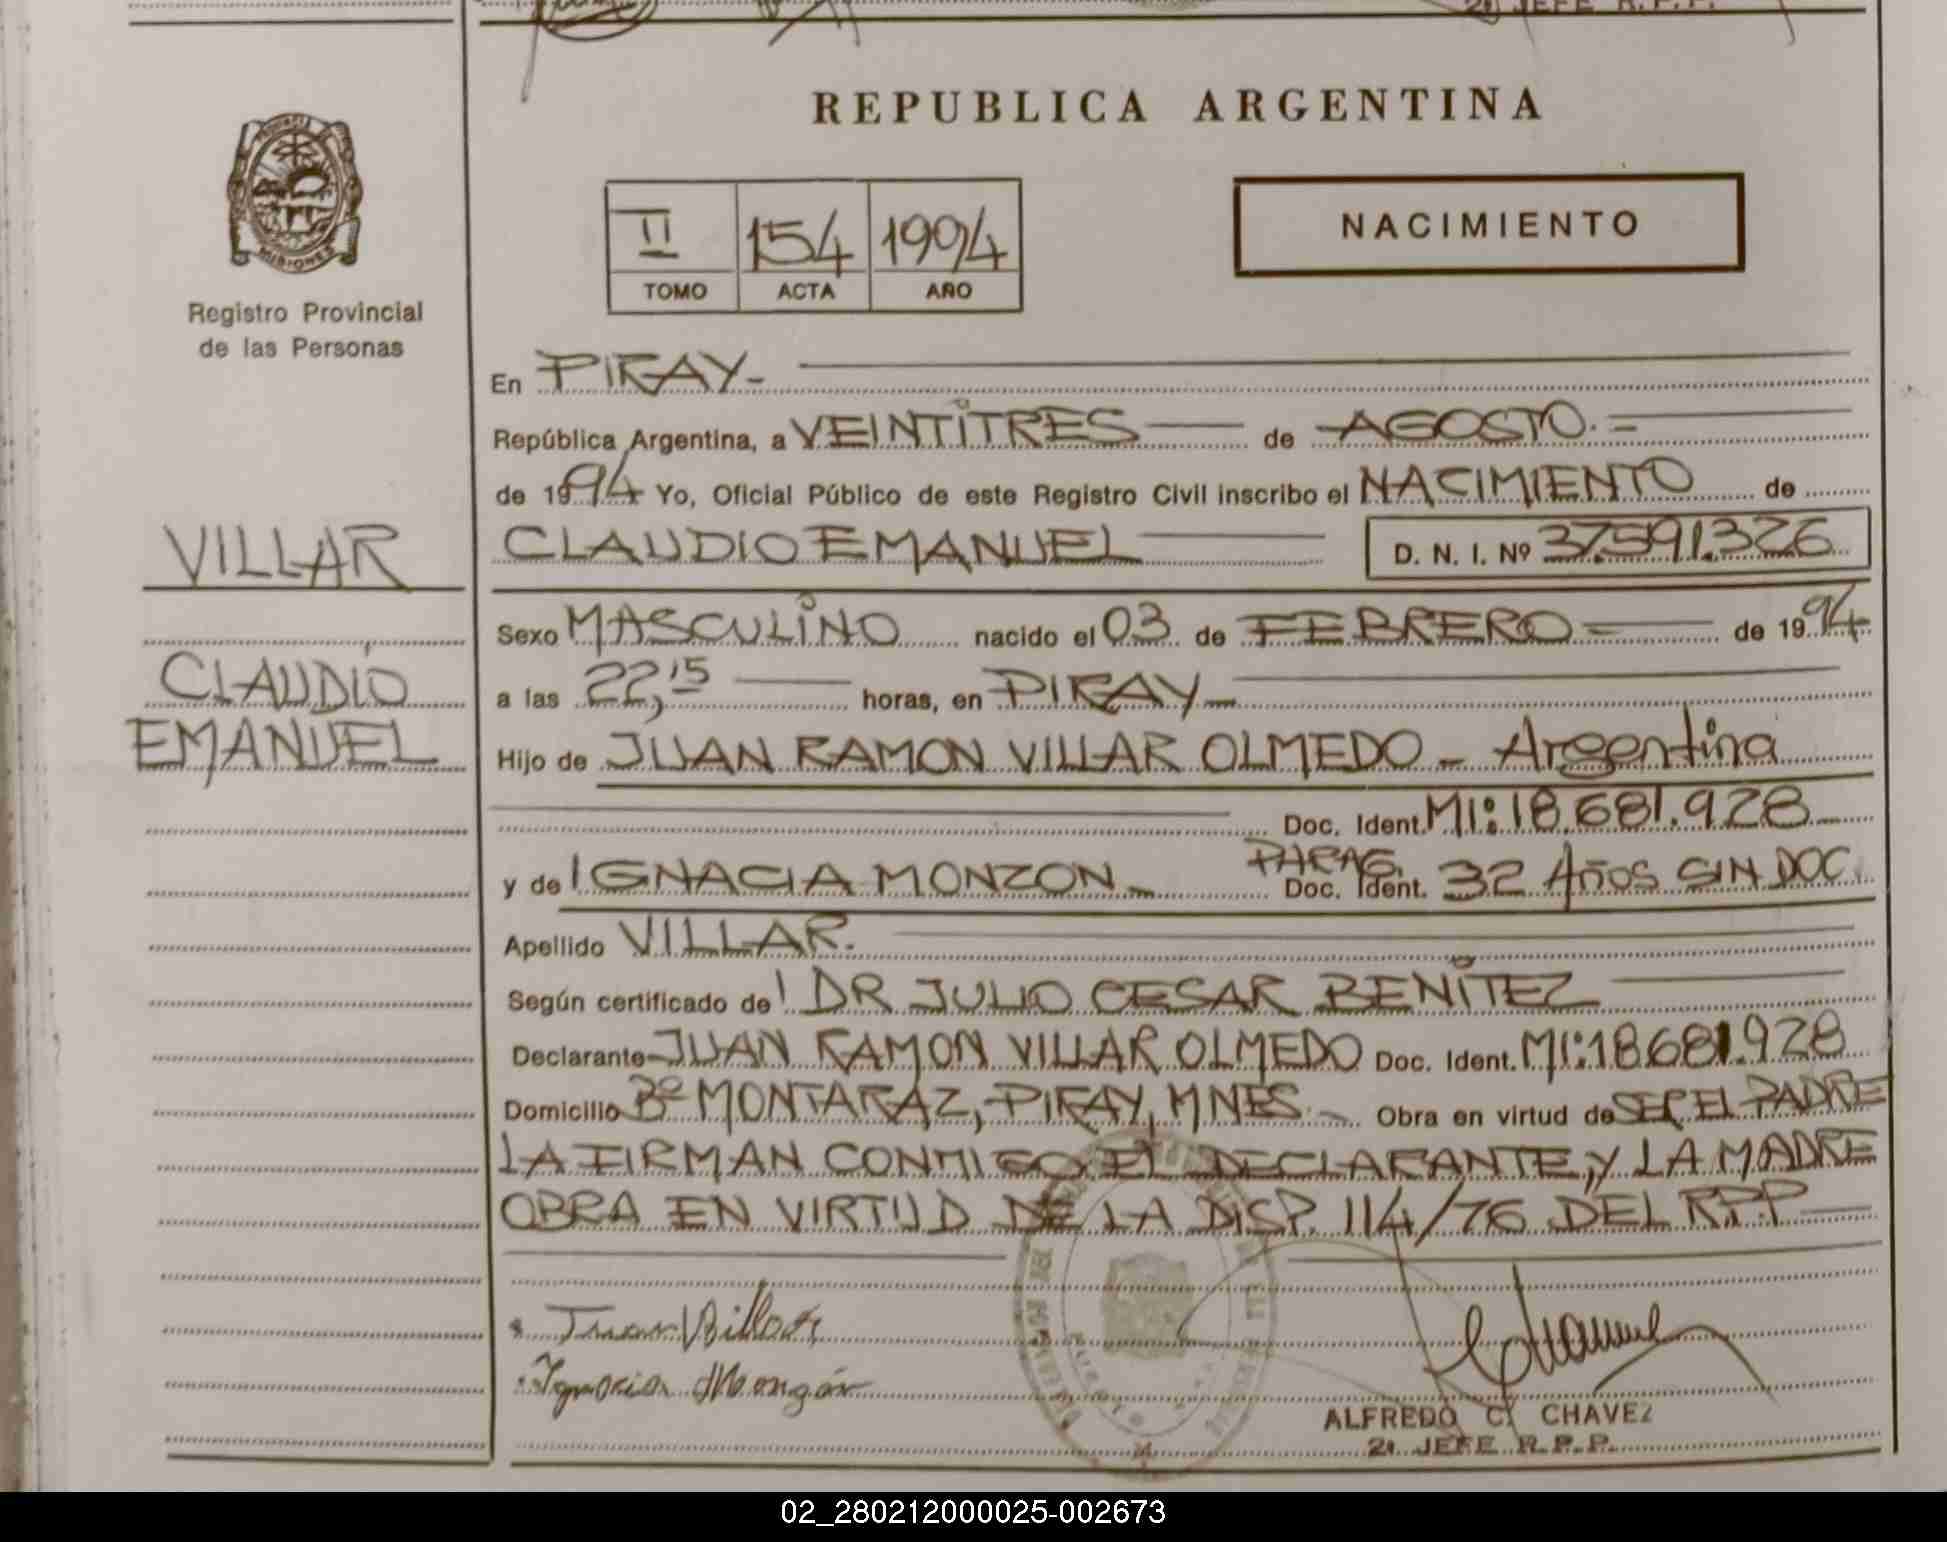 2º JEFE R.P.P.
REPUBLICA ARGENTINA
II 154 1994
TOMO ACTA AÑO
NACIMIENTO
MISIONES
Registro Provincial
de las Personas
En PIRAY-
República Argentina, a VEINTITRES de AGOSTO.
de 1994 Yo, Oficial Público de este Registro Civil inscribo el NACIMIENTO de
VILLAR
CLAUDIO EMANUEL D. N. I. Nº 37.591.326
Sexo MASCULINO nacido el 03 de FEBRERO de 1994
CLAUDIO
EMANUEL
a las 22,15 horas, en PIRAY
Hijo de JUAN RAMON VILLAR OLMEDO - Argentina
Doc. Ident. MI: 18.681.928
y de IGNACIA MONZON PARAG. Doc. Ident. 32 AÑOS SIN DOC.
Apellido VILLAR.
Según certificado del DR JULIO CESAR BENITEZ
Declarante JUAN RAMON VILLAR OLMEDO Doc. Ident. MI: 18681.928
Domicilio Bº MONTARAZ, PIRAY, MNES. Obra en virtud de SER EL PADRE
LA FIRMAN CONMIGO EL DECLARANTE, Y LA MADRE
OBRA EN VIRTUD DE LA DISP. 114/76 DEL RPP
Juan Billar
Ignacia Monzón
ALFREDO C. CHAVEZ
2º JEFE R.P.P.
02_280212000025-002673